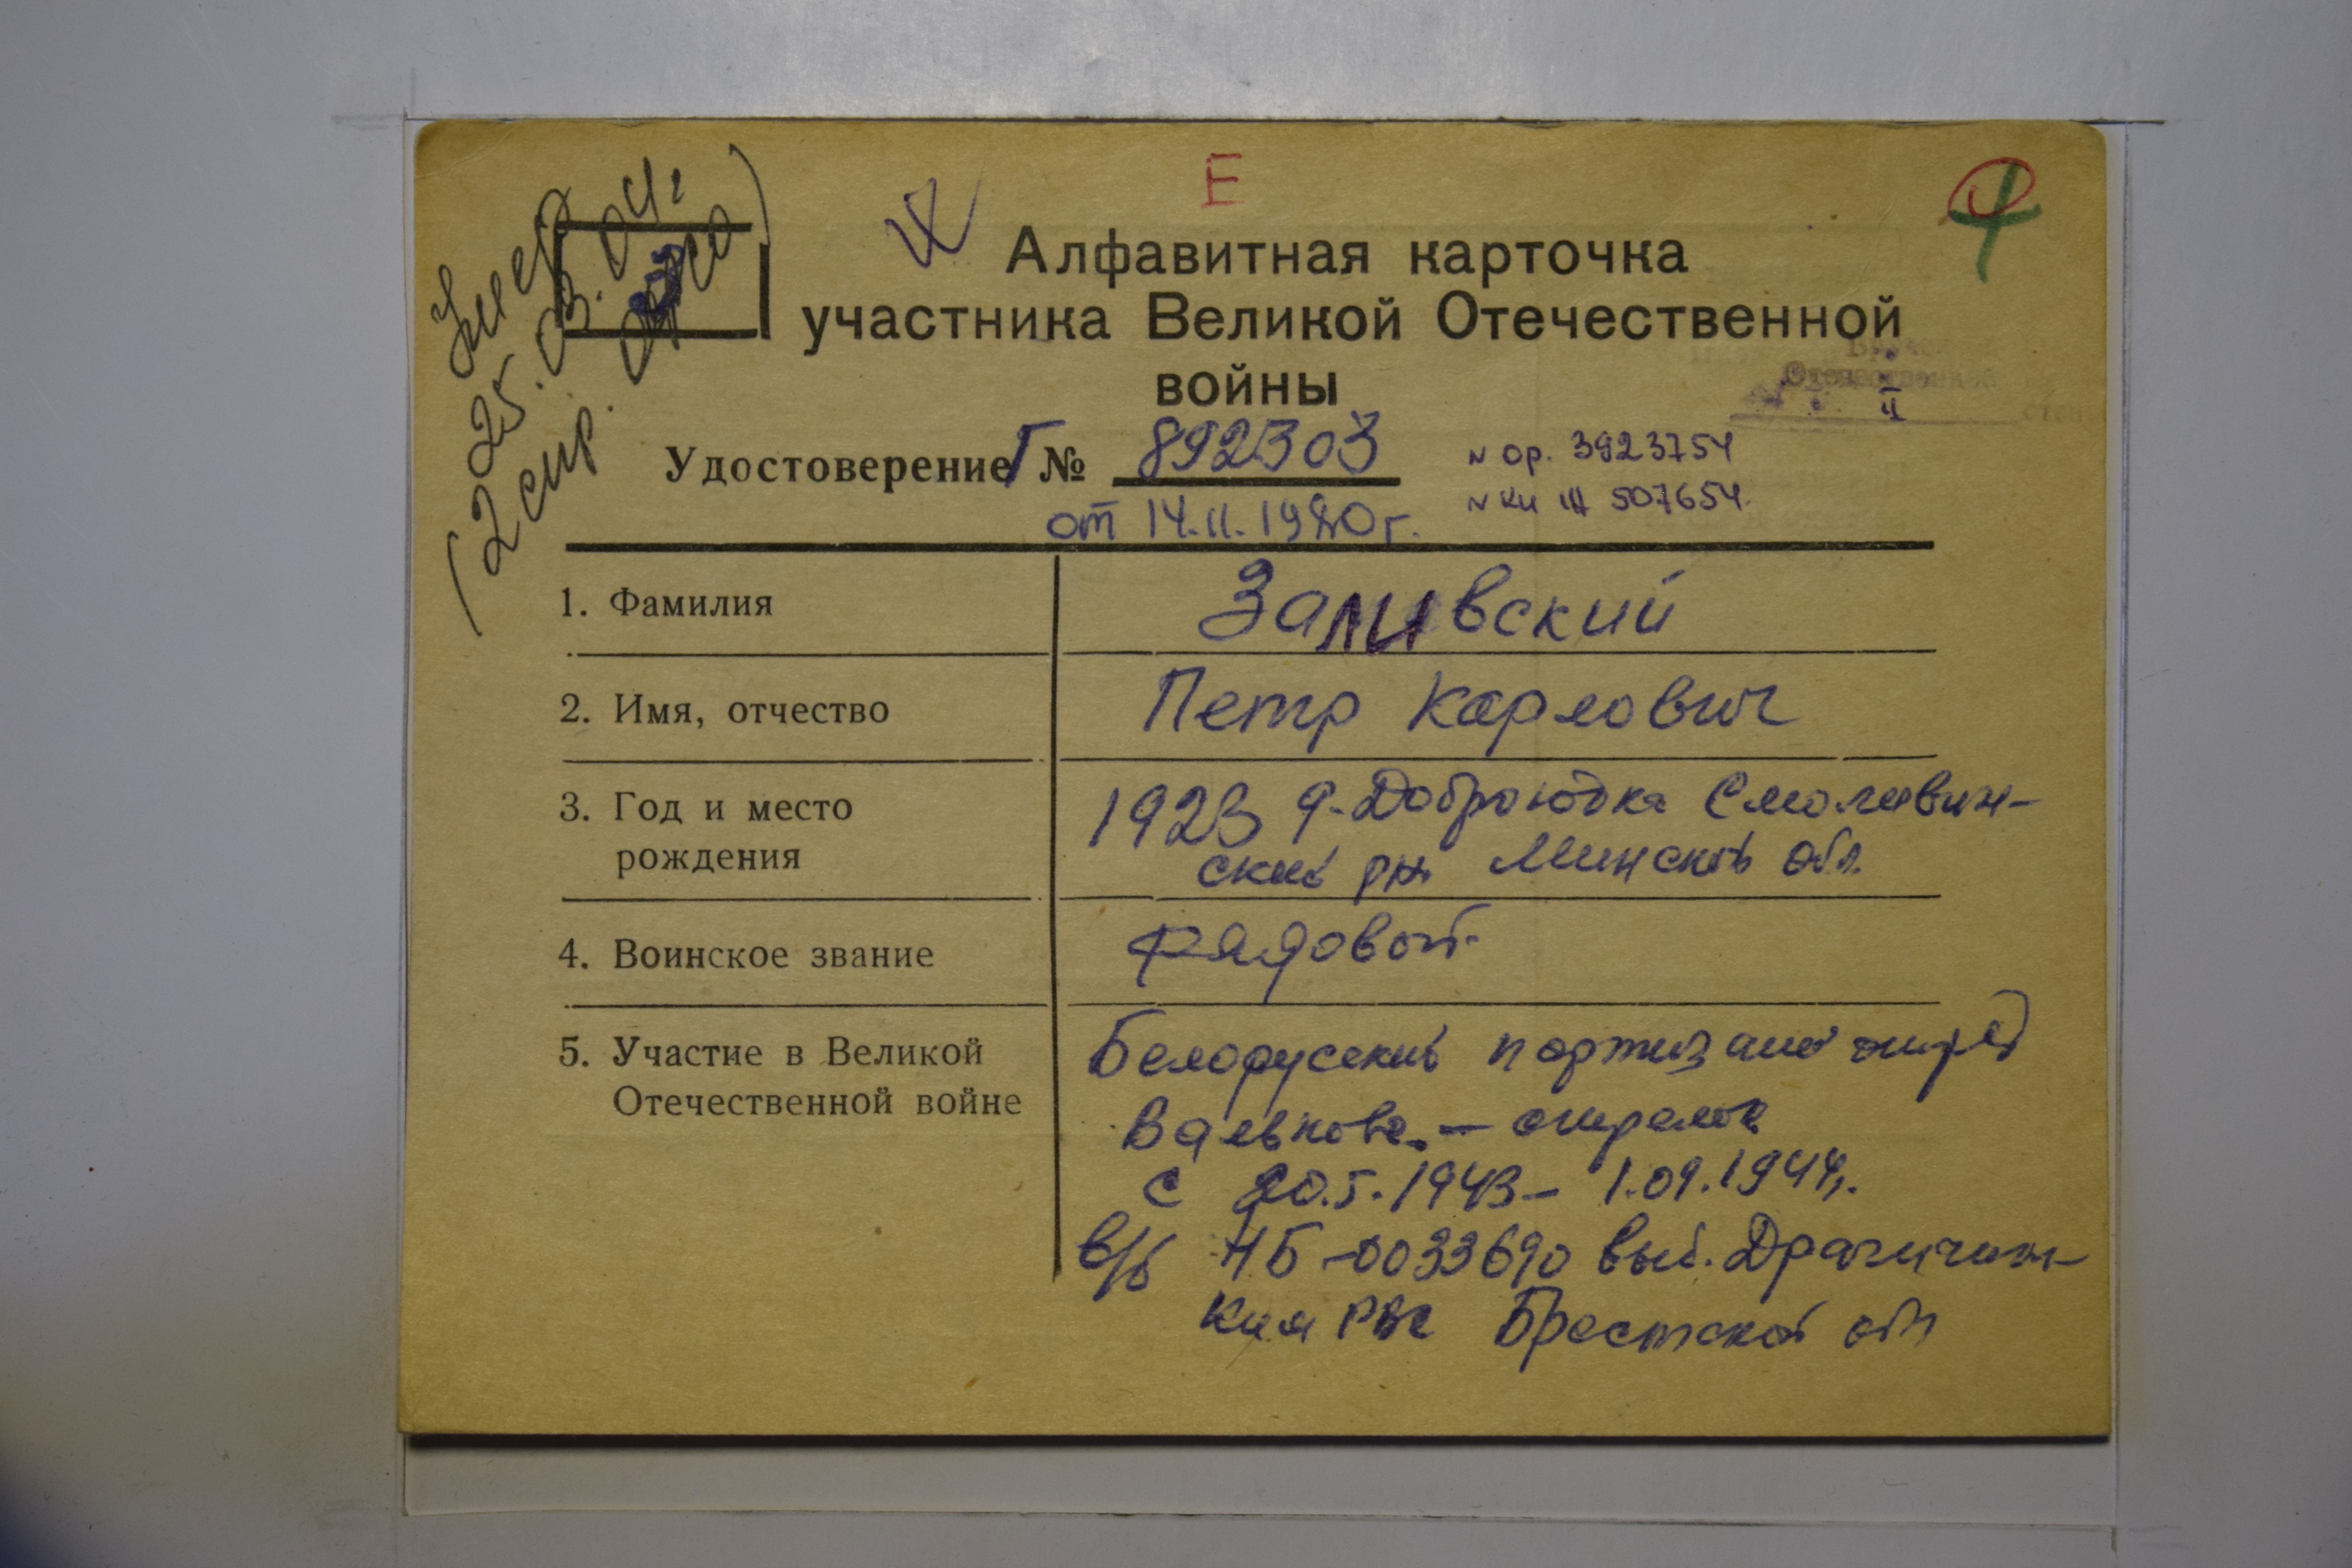 Умер
25.03.04г
(2 стр.
Е
Алфавитная карточка
участника Великой Отечественной
войны
Отечественной
II
Удостоверение Г № 892303
N ор. 3923754
от 14.11.1980г.
N кн 507654
1. Фамилия Заливский
2. Имя, отчество Петр Карлович
3. Год и место рождения 1923 д. Смолевич-
ский рн Минской обл.
4. Воинское звание рядовой
5. Участие в Великой Отечественной войне Белорусский партизанс отряд
– стрелок
с 20.5.1943 – 1.09.1944г.
в/б НБ-0033690 выд. Драгичин-
ким РВК Брестской обл